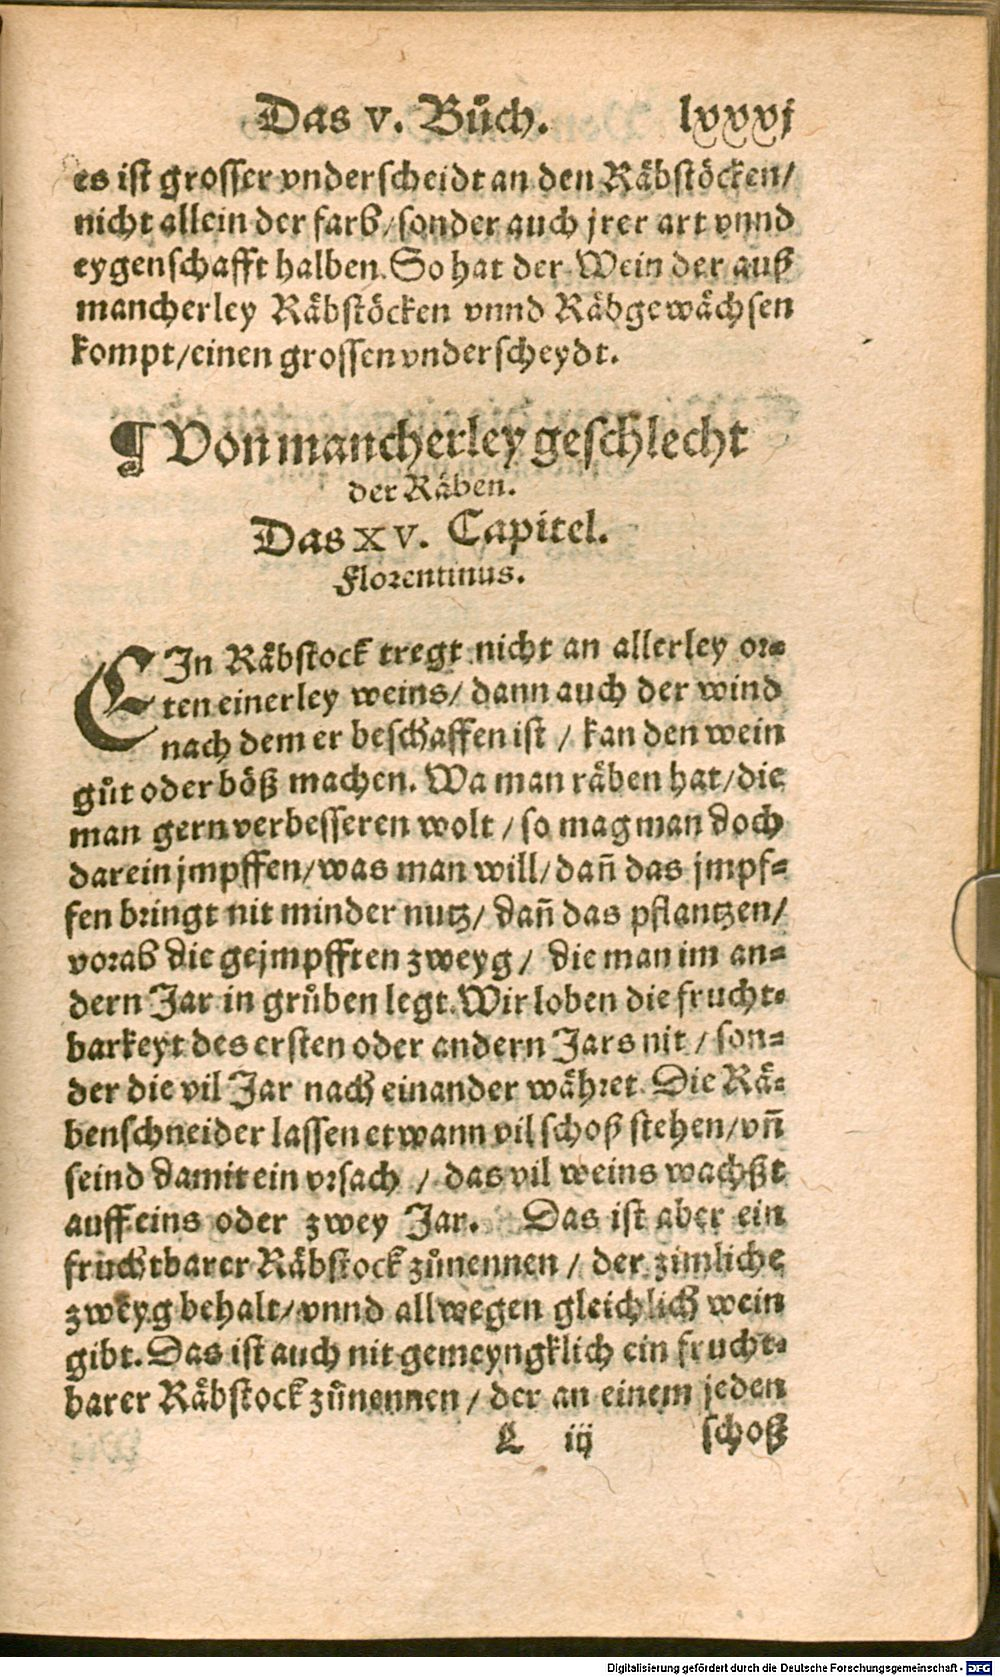 Das v. Bůch. lxxxj
es ist grosser vnderscheidt an den Räbstöcken/
nicht allein der farb/sonder auch jrer art vnnd
eygenschafft halben. So hat der Wein der auß
mancherley Räbstöcken vnnd Räbgewächsen
kompt/einen grossen vnderscheydt.
¶ Von mancherley geschlecht
der Räben.
Das XV. Capitel.
Florentinus.
EJn Räbstock tregt nicht an allerley or-
ten einerley weins/ dann auch der wind
nach dem er beschaffen ist / kan den wein
gůt oder böß machen. Wa man räben hat/die
man gern verbesseren wolt / so mag man doch
darein jmpffen/was man will/ dañ das jmpf-
fen bringt nit minder nutz/ dañ das pflantzen/
vorab die gejmpfften zweyg / die man im an-
dern Jar in grůben legt. Wir loben die frucht-
barkeyt des ersten oder andern Jars nit / son-
der die vil Jar nach einander währet. Die Rä-
benschneider lassen etwann vil schoß stehen/vñ
seind damit ein vrsach / das vil weins wachßt
auff eins oder zwey Jar. Das ist aber ein
fruchtbarer Räbstock zůnennen / der zimliche
zweyg behalt/vnnd allwegen gleichlich wein
gibt. Das ist auch nit gemeyngklich ein frucht-
barer Räbstock zůnennen / der an einem jeden
L iij schoß
Digitalisierung gefördert durch die Deutsche Forschungsgemeinschaft - DFG